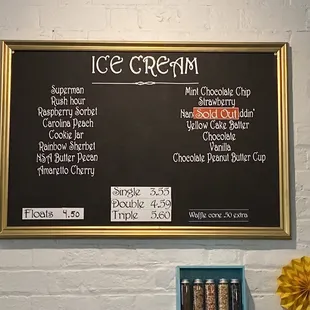 ICE CREAM
Superman
Rush hour
Raspberry Sorbet
Carolina Peach
Cookie Jar
Rainbow Sherbet
NSA Butter Pecan
Amaretto Cherry
Mint Chocolate Chip
Strawberry
Nan Sold Out ddin'
Yellow Cake Batter
Chocolate
Vanilla
Chocolate Peanut Butter Cup
Floats 4.50
Single 3.55
Double 4.59
Triple 5.60
Waffle cone .50 extra